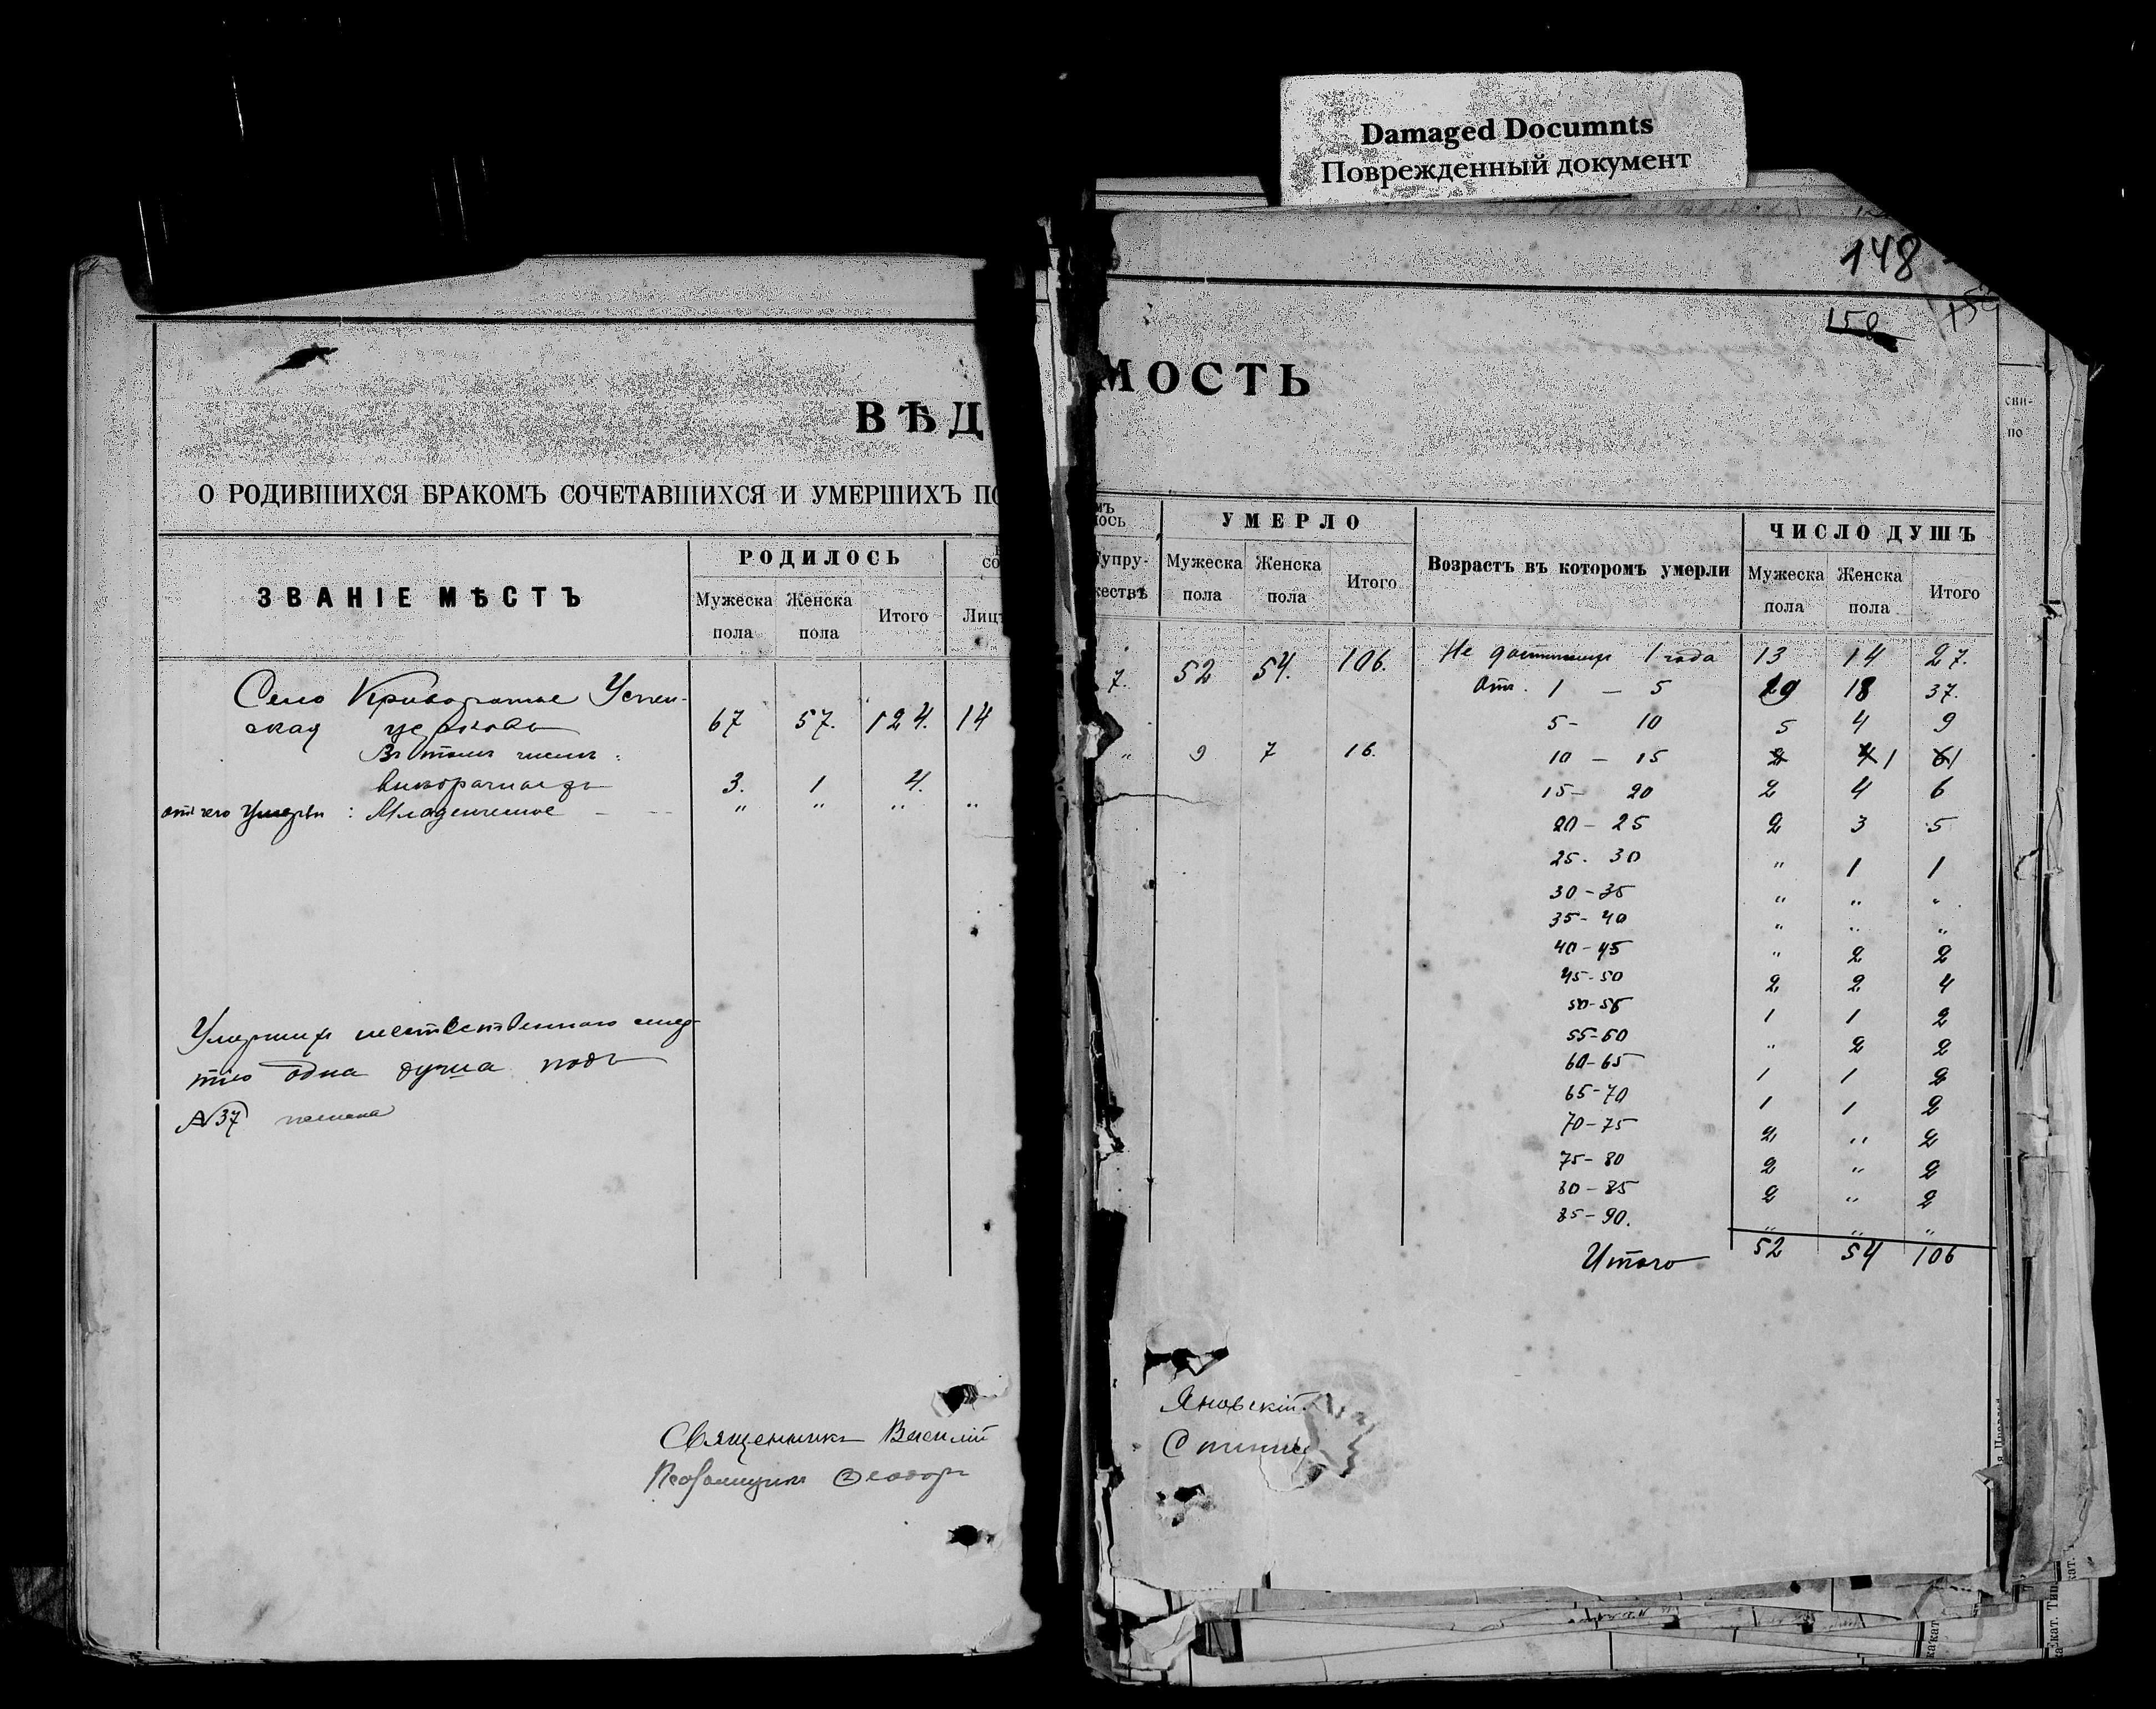 Damaged Documnts
Поврежденный документ
148
158
ВѢД МОСТЬ
О РОДИВШИХСЯ БРАКОМЪ СОЧЕТАВШИХСЯ И УМЕРШИХЪ ПО
ЗВАНІЕ МѢСТЪ
РОДИЛОСЬ
Мужеска пола
Женска пола
Итого
Лицъ
Село Успен-
ская церковь
67 57. 124. 14
Въ томъ числѣ:
3. 1 4.
отъ чего умерли: Младенческое " " " "
Умершихъ
тію одна душа подъ
№ 37
Священникъ Василій
Псаломщикъ Ѳеодоръ
УМЕРЛО
Супру-
жествѣ
Мужеска пола
Женска пола
Итого
Возрастъ въ которомъ умерли
ЧИСЛО ДУШЪ
Мужеска пола
Женска пола
Итого
7. 52 54. 106.
" 9 7 16.
Не достигшихъ 1 года 13 14 27.
Отъ. 1 — 5 19 18 37.
5 - 10 5 4 9
10 — 15 1 1
15 - 20 2 4 6
20 - 25 2 3 5
25. 30 " 1 1
30 - 35 " " "
35 - 40 " " "
40 - 45 " 2 2
45 - 50 2 2 4
50 - 55 1 1 2
55 - 60 " 2 2
60 - 65 1 1 2
65 - 70 1 1 2
70 - 75 2 " 2
75 - 80 2 " 2
80 - 85 2 " 2
85 - 90. " " "
Итого 52 54 106
Яновскій.
сви-
по